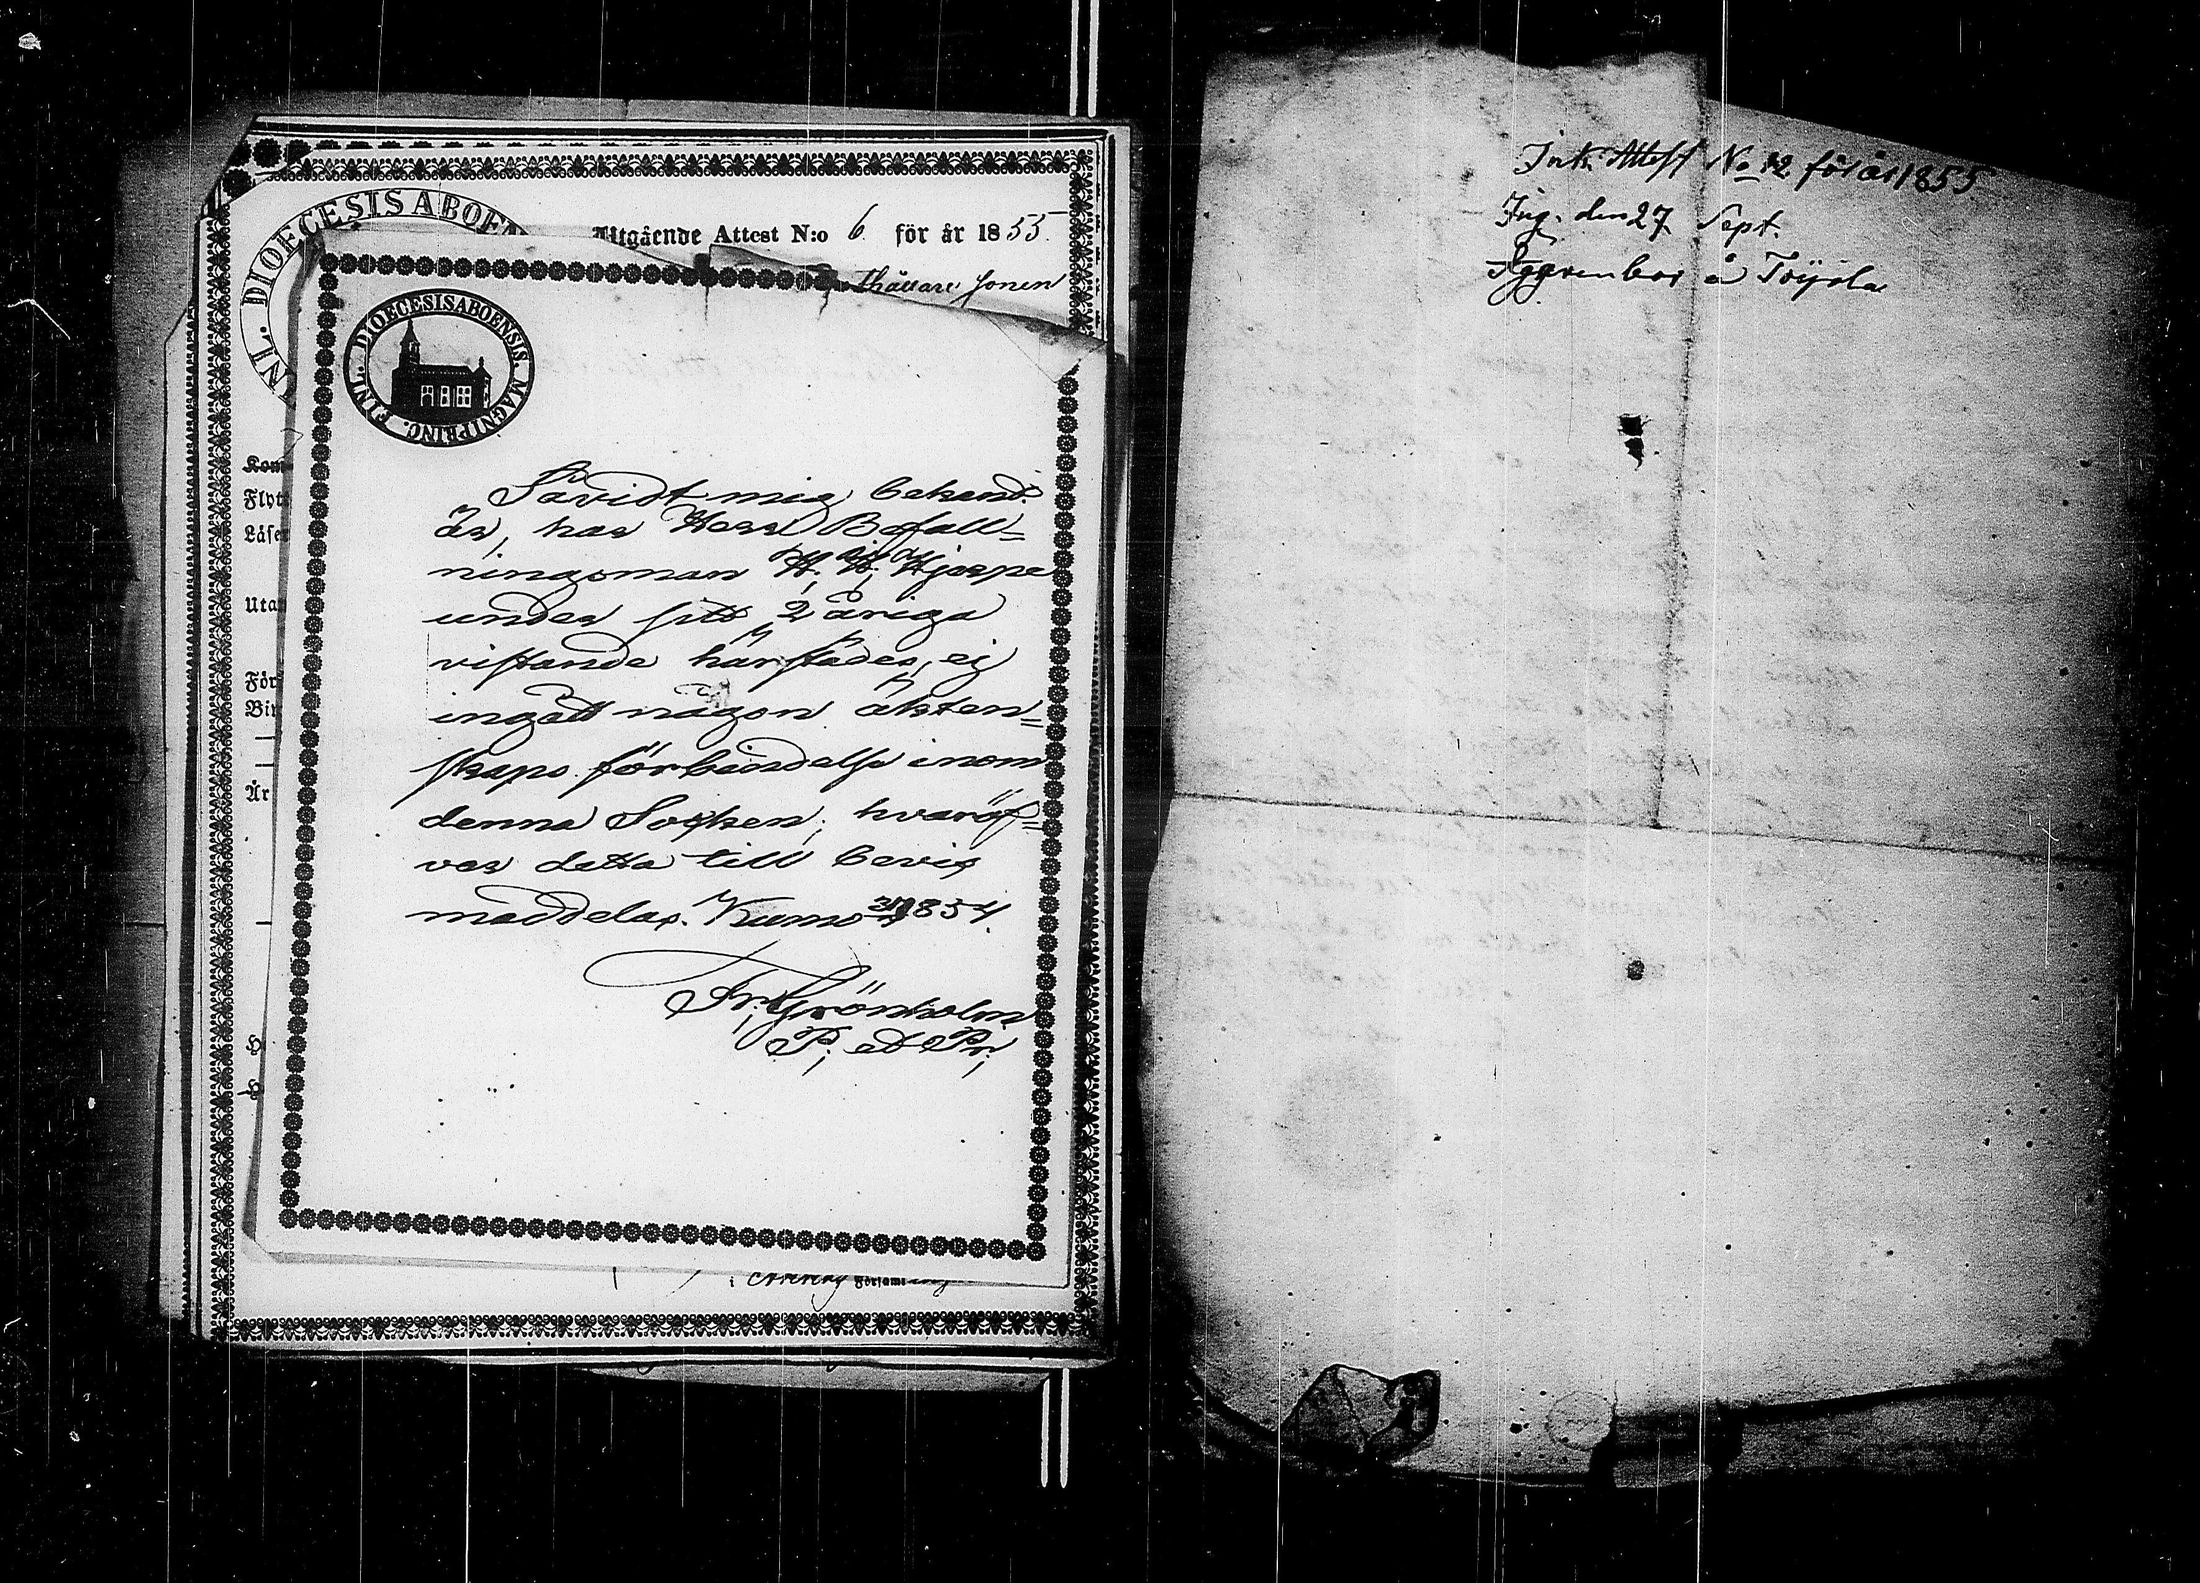 DIOECESIS ABOEN
INL.
Utgående Attest N:o 6 för år 1855.
thållare Jonen
DIOECESIS ABOENSIS. MAGNI PRINC. FINL.
Kom
Flyt
Läser
Utan
För
År
Såvidt mig bekant
är, har Herr Befall=
ningsman H. W. Hjerpe
under sitt 2 åriga
vistande härstädes, ej
ingått någon äkten=
skaps förbindelse inom
denna Socken; hvaröf=
ver detta till bevis
meddelas. Kumo 1854.
Fr: Grönholm
P; et Pr;
i Församling
Ink. Attest No 12 för år 1855
Ing. den 27 Sept.
å